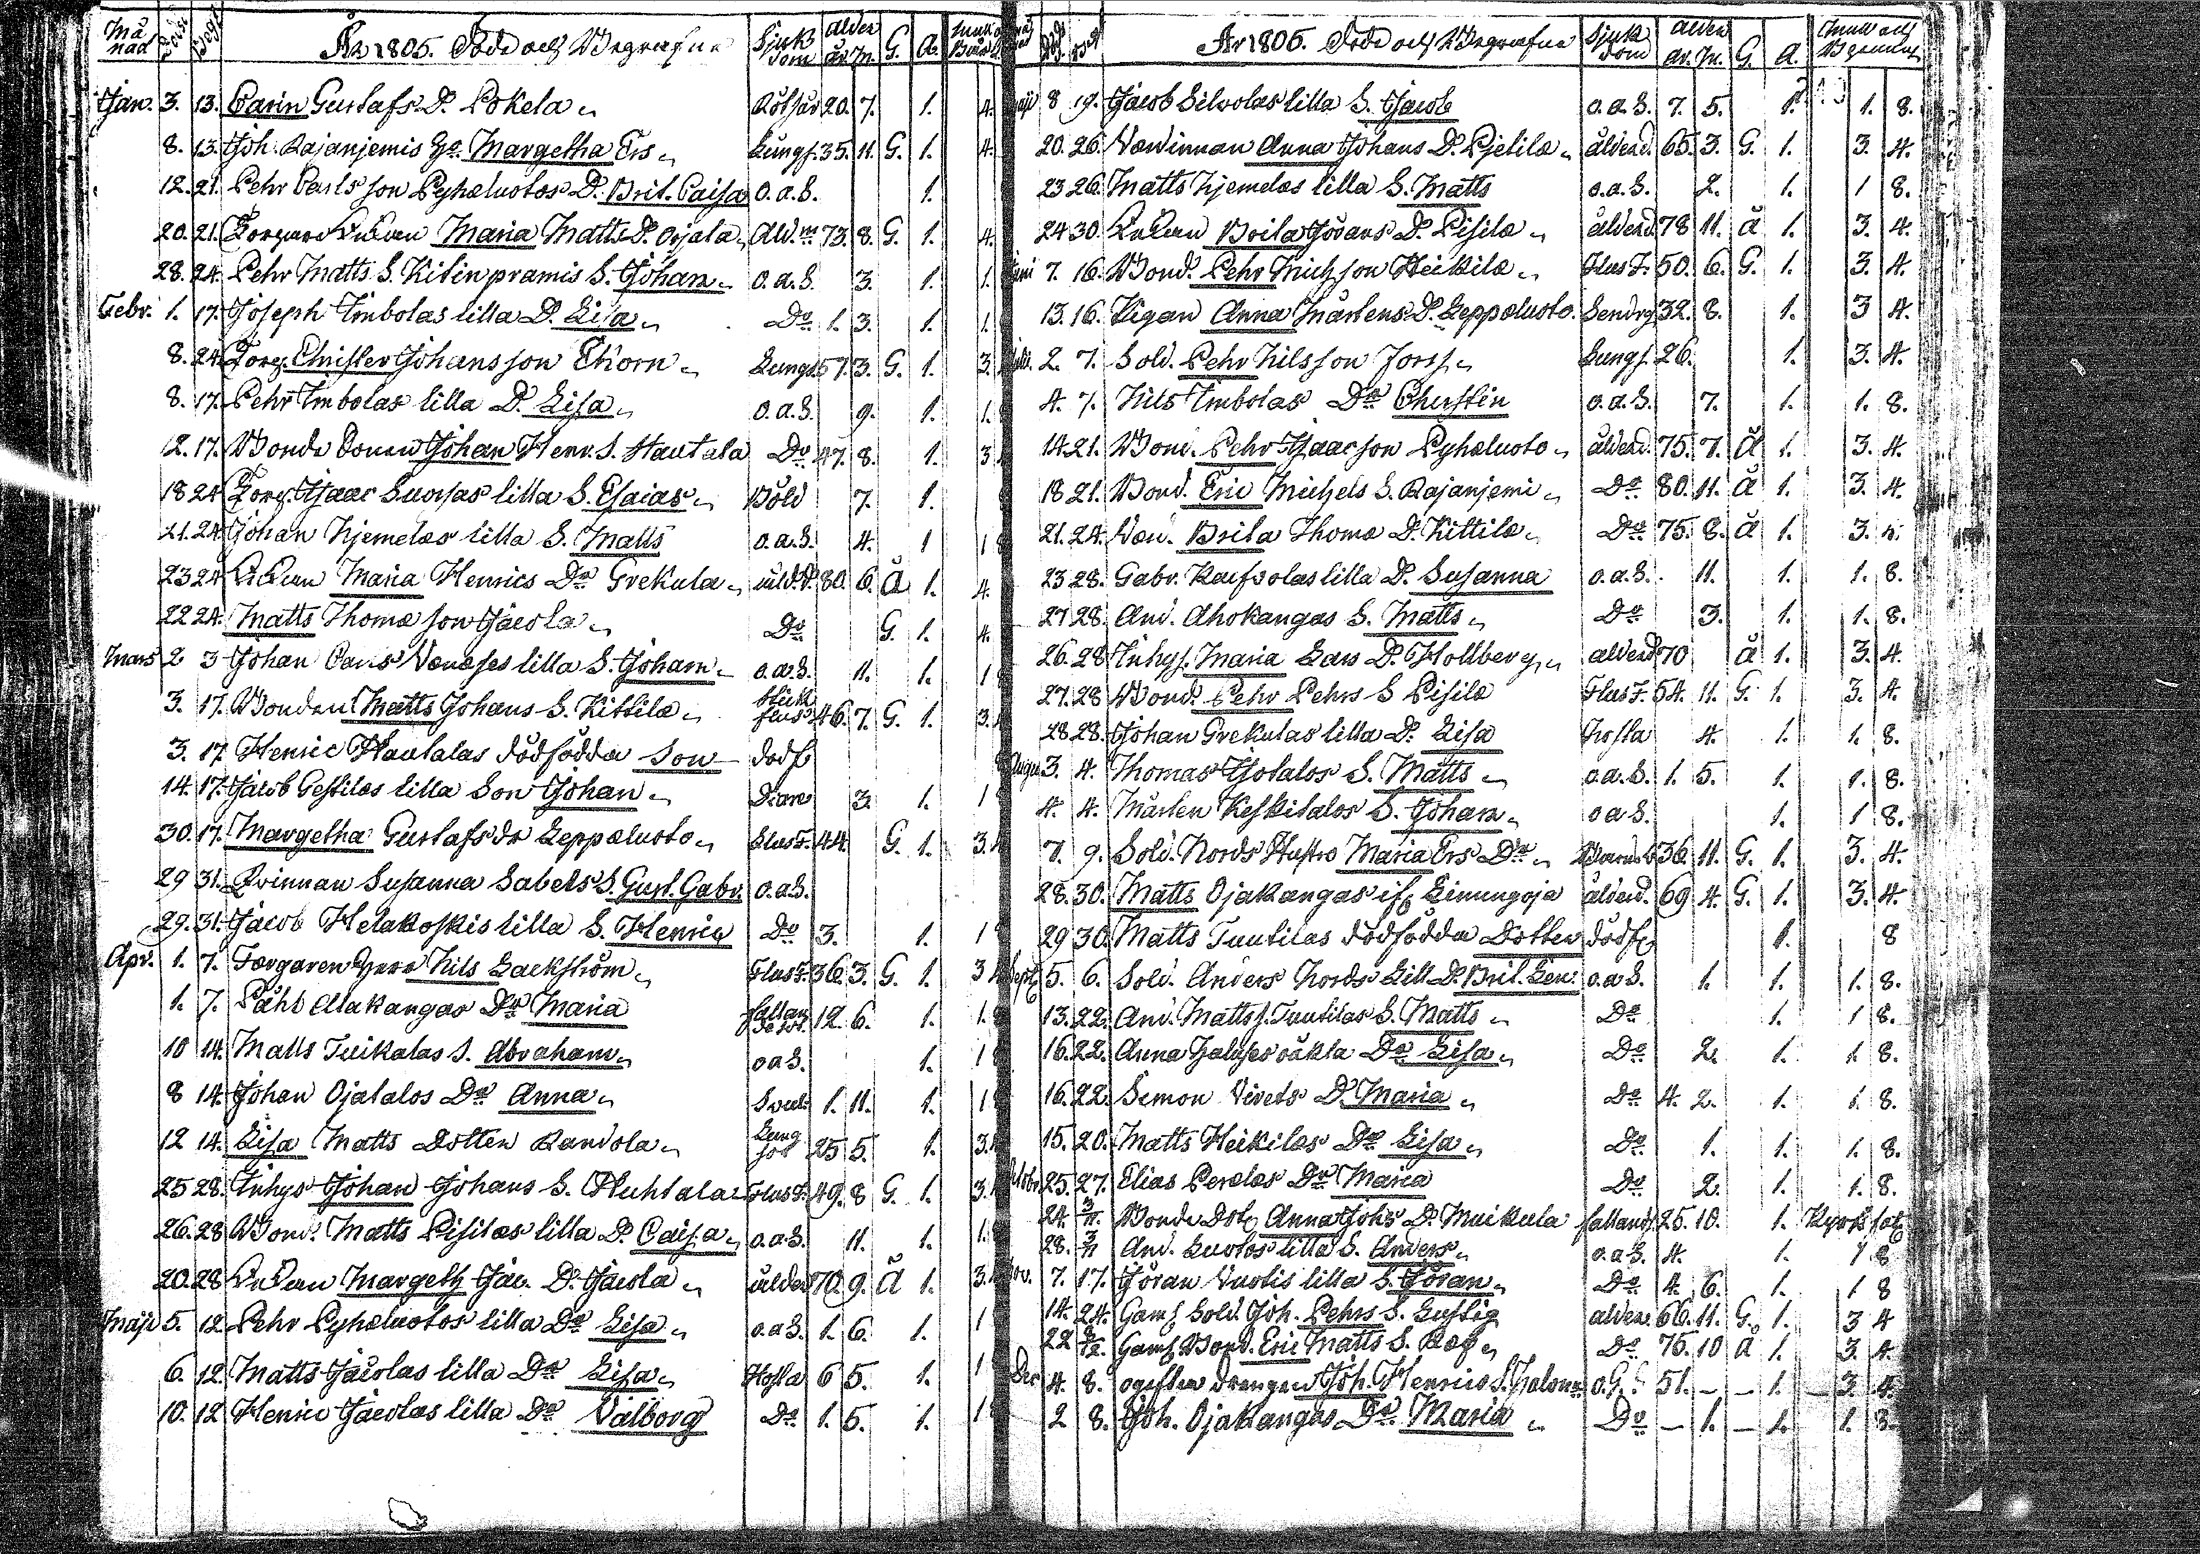 Må nad Död Begr. År 1806. Döde och Begrafne Sjuk dom ålder år. M. G. A.
Jan. 3. 13. Carin Gustafs D. Pokela 20. 7. 1. 4.
8. 13. Joh. Rajanjemis Margetha Ers Lungs. 35. 11. G. 1. 4.
12. 21. Pehr Carls son Pyhæluotos D. Brit. Caisa o.a.S. 1.
20. 21. Maria Matts D. Orjala Åld. 73. 8. G. 1. 4.
28. 24. Pehr Matts S. Kitinpramis S. Johan o.a.S. 3. 1. 1.
Febr. 1. 17. Joseph Imbolas lilla D. Lisa Do 1. 3. 1. 1.
8. 24. Borg. Christer Johansson Thorn Lungs. 57. 3. G. 1. 3.
8. 17. Pehr Imbolas lilla D. Lisa o.a.S. 9. 1. 1.
12. 17. Bonde Sonen Johan Henr. S. Hautala Do 47. 8. 1. 3.
18 24 Borg. Isaac lilla S. Esaias Böld 7. 1.
21. 24 Johan Njemelæs lilla S. Matts o.a.S. 4. 1 1
23 24 Enkan Maria Henrics Dr Grekula åld.d. 80. 6. Ä 1. 4.
22 24. Matts Thomæ son Jäcola Do G. 1. 4.
Mars 2 3 Johan Carls lilla S. Johan o.a.S. 11. 1. 1
3. 17. Bonden Matts Johans S. Kittilæ 46. 7. G. 1. 3.
3. 17. Henric Hautalas dödfödda Son dödf
14. 17. Jacob Gestilæs lilla Son Johan Diarre 3. 1. 1
30. 17. Margetha Gustafs dr Leppæluoto FlusF. 44. G. 1. 3.
29 31. Qvinnan Susanna Sabels S. Gust. Gabr. o.a.S.
29. 31. Jacob Helakoskis lilla S. Henric Do 3. 1. 1
Apr. 1. 7. Færgaren Herr Nils Lackström FlusF. 36. 3. G. 1. 3
1. 7. Påhl Alakangas Dr Maria 12. 6. 1. 1.
10 14. Matts Tuikalas S. Abraham o a S. 1. 1
8 14. Johan Ojatalos Dr Anna 1. 11. 1. 1
12 14. Lisa Matts Dotter Randola Lung sot 25 5. 1. 3.
25 28. Inhys Johan Johans S. Huhtala FlusF. 49. 8 G. 1. 3.
26. 28 Bond. Matts Pisilæs lilla D. Caisa o.a.S. 11. 1. 1.
20. 28 Enkan Margeth Jac. D. Jäcola ålder 70. 9. Ä 1. 3.
Maji 5. 12. Pehr Pyhæluotos lilla Dr Lisa o.a.S. 1. 6. 1. 1
6. 12. Matts Jäcolas lilla Dr Lisa Hosta 6 5. 1. 1
10. 12 Henric Jäcolas lilla Dr Valborg Do 1. 5. 1. 1
År 1806. Döde och Begrafne Sjuk dom ålder år. M. G. A.
Maji 8 19. Jacob Silvolas lilla S. Jacob o.a.S. 7. 5. 1. 1. 8.
20. 26. Værdinnan Anna Johans D. Pjetilæ ålderd. 65. 3. G. 1. 3. 4.
23 26. Matts Njemelæs lilla S. Matts o.a.S. 2. 1. 1 8.
24 30. Enkan Brita Jörans D. Pisilæ ålderd 78 11. ä 1. 3. 4.
Juni 7. 16. Bond. Pehr Michsson Heikilæ FlusF. 50. 6. G. 1. 3. 4.
13. 16. Pigan Anna Mårtens D. Leppæluoto. 32. 8. 1. 3 4.
Juli. 2. 7. Sold. Pehr Nilsson Forss Lungs. 26. 1. 3. 4.
4. 7. Nils Imbolas Dr Cherstin o.a.S. 7. 1. 1. 8.
14. 21. Bond. Pehr Isaacsson Pyhæluoto ålderd. 75. 7. Ä 1. 3. 4.
18 21. Bond. Eric Michels S. Rajanjemi Do 80. 11. ä 1. 3. 4.
21. 24. Værd. Brita Thomæ D. Kittilæ Do 75. 8. ä 1. 3. 4.
23 28. Gabr. lilla D. Susanna o.a.S. 11. 1. 1. 8.
27 28. And. Ahokangas S. Matts Do 3. 1. 1. 8.
26. 28 Inhys. Maria Lars D. Hollberg ålderd 70 ä 1. 3. 4.
27. 28 Bond. Pehr Pehrs S Pisilæ FlusF. 54. 11. G. 1. 3. 4.
28. 28. Johan Grekulas lilla D. Lisa Hosta 4. 1. 1. 8.
Augu 3. 4. Thomas Jotalos S. Matts o.a.S. 1. 5. 1. 1. 8.
4. 4. Mårten Keskitalos S. Johan o a S. 1. 1 8.
7. 9. Sold. Nords Hustro Maria Ers Dr Barnsb 36. 11. G. 1. 3. 4.
28. 30. Matts Ojakangas ifr. Limingoja ålderd. 69 4. G. 1. 3. 4.
29 30. Matts Tuutilas dödfödda Dotter dödf 1. 8
Sept 5. 6. Sold. Anders Nords Lill D. Brit. Len: o.a.S. 1. 1. 1. 8.
13. 22. And. Matts s. Tuutilas S. Matts Do 1. 1 8.
16. 22. Anna oäkta Dr Lisa Do 2. 1. 1. 8.
16. 22. Simon Virets D. Maria Do 4. 2. 1. 1. 8.
15. 20. Matts Heikilæs Dr Lisa Do 1. 1. 1. 8.
Octobr 25. 27. Elias Perælæs Dr Maria Do 2. 1. 1. 8.
24. 3/11. Bonde Dotr. Anna Johs D. Muikula 25. 10. 1.
28. 3/11 And. Luotos lilla S. Anders o.a.S. 4. 1. 1 8
Nov. 7. 17. Jöran lilla S. Jöran Do 4. 6. 1. 1 8
14. 24. Gaml Sold. Joh. Pehrs S. Lustig ålder. 66. 11. G. 1. 3 4
22 Gaml Bond. Eric Matts S. Ræf Do 75. 10 ä 1. 3. 4.
Dec 4. 8. ogifta drengen Joh. Henrics S. 51. – – 1. – 3. 4.
2 8. Joh. Ojakangas Dr Maria Do – 1. – 1. 1. 8.